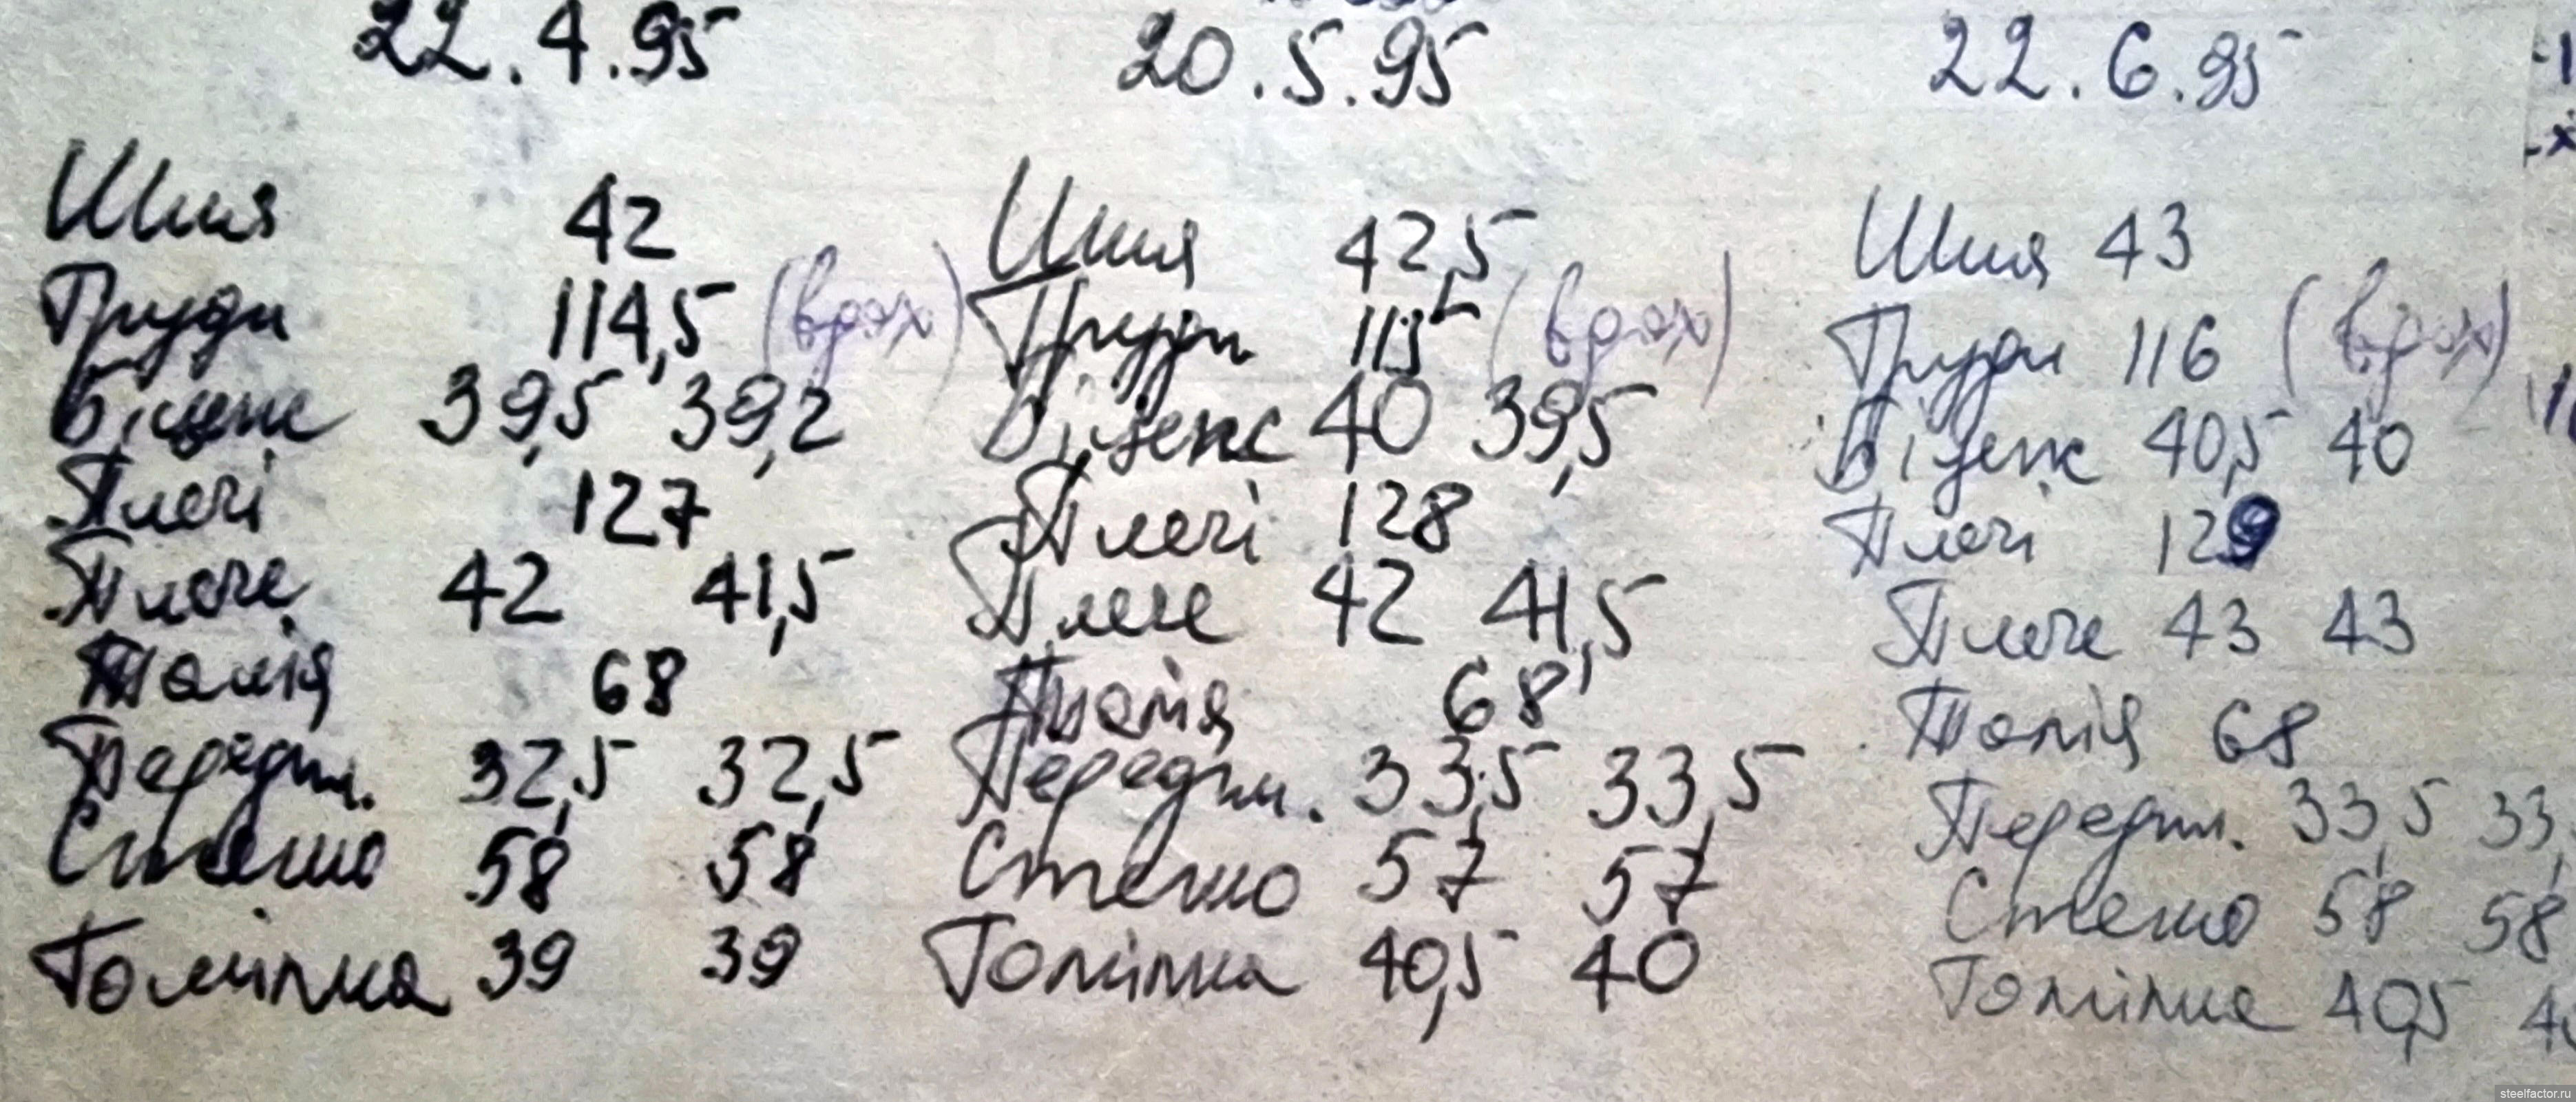 22.4.95
Шия 42
Груди 114,5 (вдох)
Біцепс 39,5 39,2
Плечі 127
Плече 42 41,5
Талія 68
Передпл. 32,5 32,5
Стегно 58 58
Гомілка 39 39
20.5.95
Шия 42,5
Груди 115 (вдох)
Біцепс 40 39,5
Плечі 128
Плече 42 41,5
Талія 68
Передпл. 33,5 33,5
Стегно 57 57
Гомілка 40,5 40
22.6.95
Шия 43
Груди 116 (вдох)
Біцепс 40,5 40
Плечі 129
Плече 43 43
Талія 68
Передпл. 33,5 33,
Стегно 58 58
Гомілка 40,5
steelfactor.ru